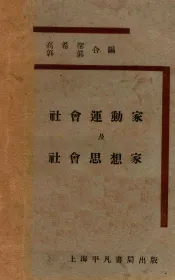 高希聖
郭真 合編
社會運動家
及
社會思想家
上海平凡書局出版